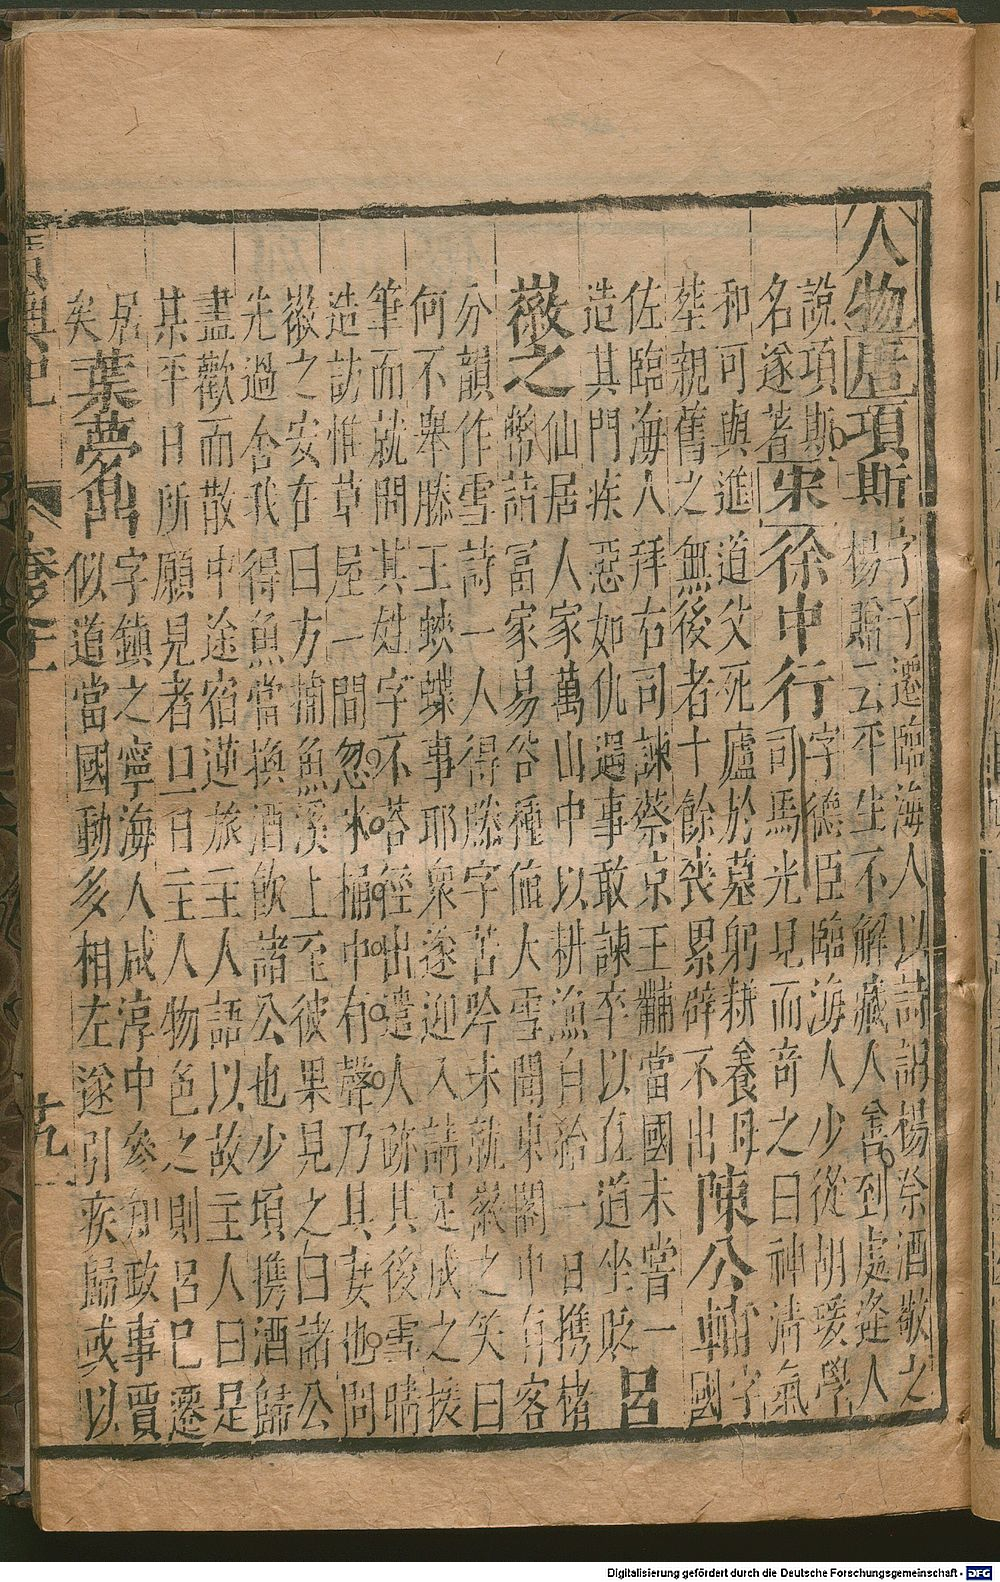 人物 唐 項斯 字子遷臨海人以詩謁楊祭酒敬之
楊贈云平生不解藏人善到處逢人
說項斯
名遂著 宋 徐中行 字德臣臨海人少從胡瑗學
司馬光見而奇之曰神清氣
和可與進道父死廬於墓躬耕養母
塟親舊之無後者十餘喪累辟不出 陳公輔 字
國
佐臨海人拜右司諫蔡京王黼當國未嘗一
造其門疾惡如仇遇事敢諫卒以直道坐貶 呂
徽之 仙居人家萬山中以耕漁自給一日攜楮
幣詣富家易谷種値大雪聞東閣中有客
分韻作雪詩一人得滕字苦吟未就徽之笑曰
何不舉滕王蛺蝶事耶衆遂迎入請足成之援
筆而就問其姓字不荅徑出遣人跡其後雪晴
造訪惟草屋一間忽米桶中有聲乃其妻也問
徽之安在曰方捕魚溪上至彼果見之曰諸公
先過舍我得魚當換酒飲諸公也少頃攜酒歸
盡歡而散中途宿逆旅主人語以故主人曰是
某平日所願見者旦日主人物色之則呂已遷
居
矣 葉夢鼎 字鎮之寧海人咸淳中參知政事賈
似道當國動多相左遂引疾歸或以
廣輿記 卷之十一 十九
Digitalisierung gefördert durch die Deutsche Forschungsgemeinschaft - DFG